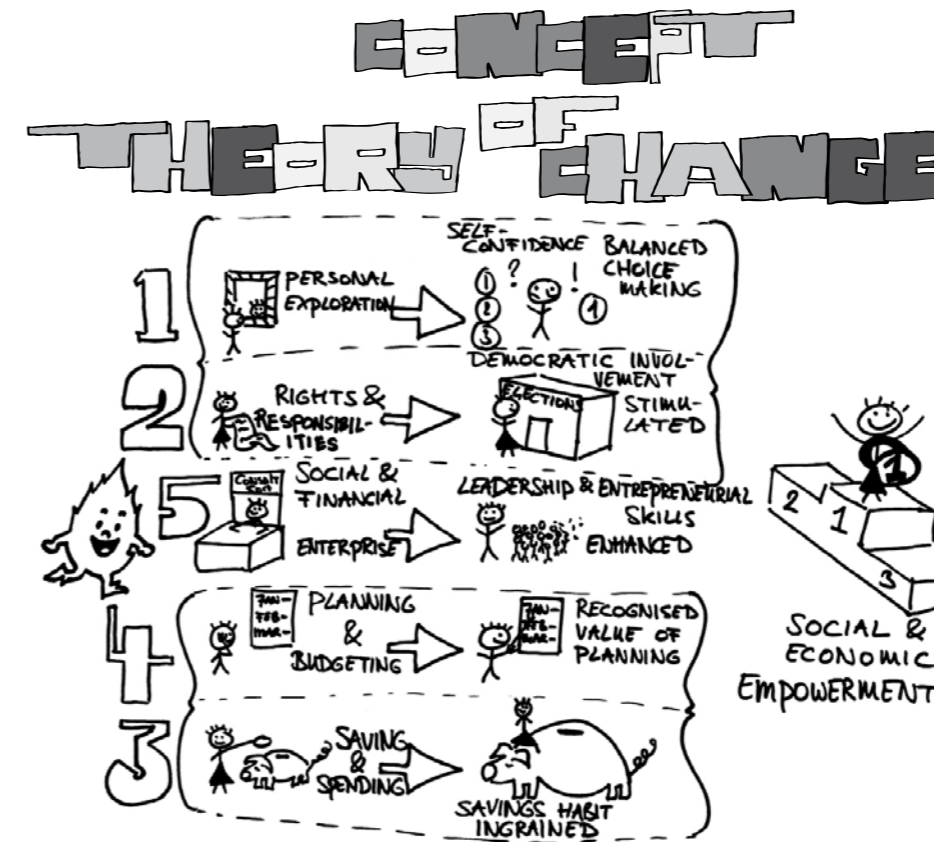 CONCEPT
THEORY OF CHANGE
1
PERSONAL
EXPLORATION
SELF-
CONFIDENCE
?
!
1
2
3
1
BALANCED
CHOICE
MAKING
2
RIGHTS &
RESPONSIBIL-
ITIES
DEMOCRATIC INVOL-
VEMENT
STIMU-
LATED
ELECTIONS
5
SOCIAL &
FINANCIAL
ENTERPRISE
LEADERSHIP & ENTREPRENEURIAL
SKILLS
ENHANCED
4
JAN-
FEB-
MAR-
PLANNING
&
BUDGETING
JAN-
FEB-
MAR-
RECOGNISED
VALUE OF
PLANNING
3
SAVING
&
SPENDING
SAVINGS HABIT
INGRAINED
1
2
1
3
SOCIAL &
ECONOMIC
EMPOWERMENT